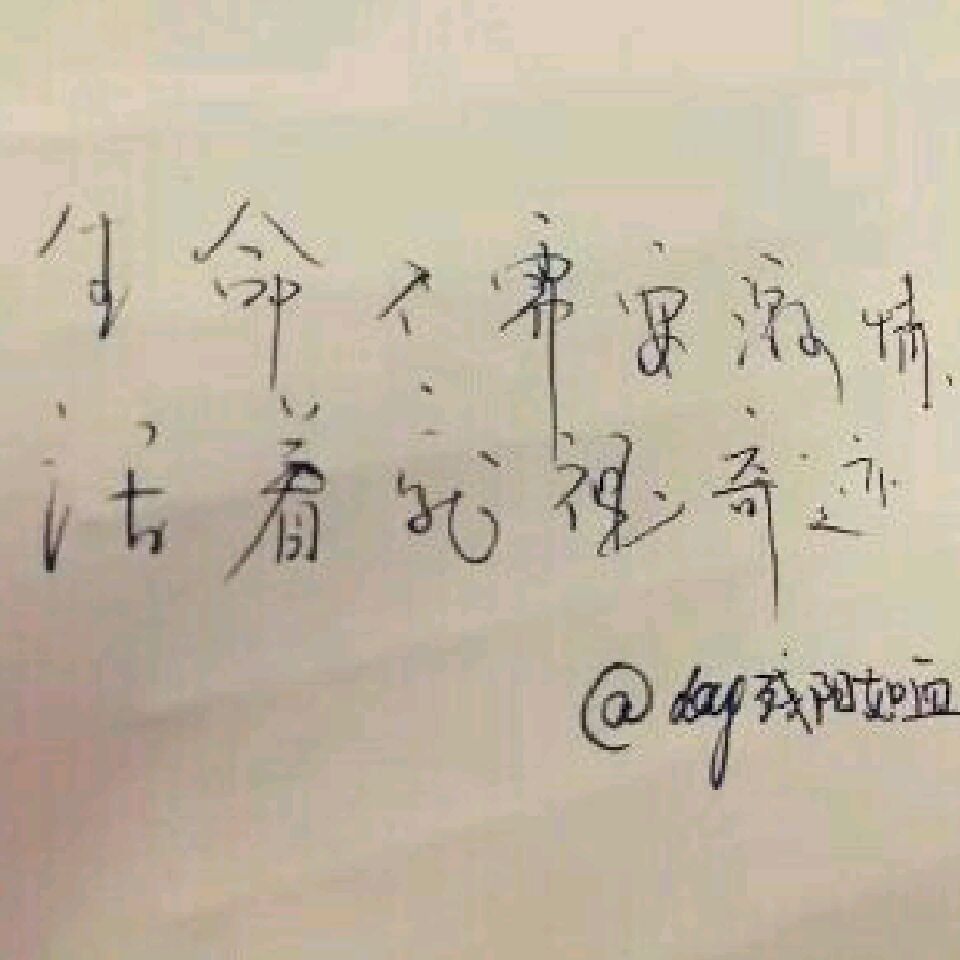 生命不需要激情、
活着就是奇迹
@day残阳如血